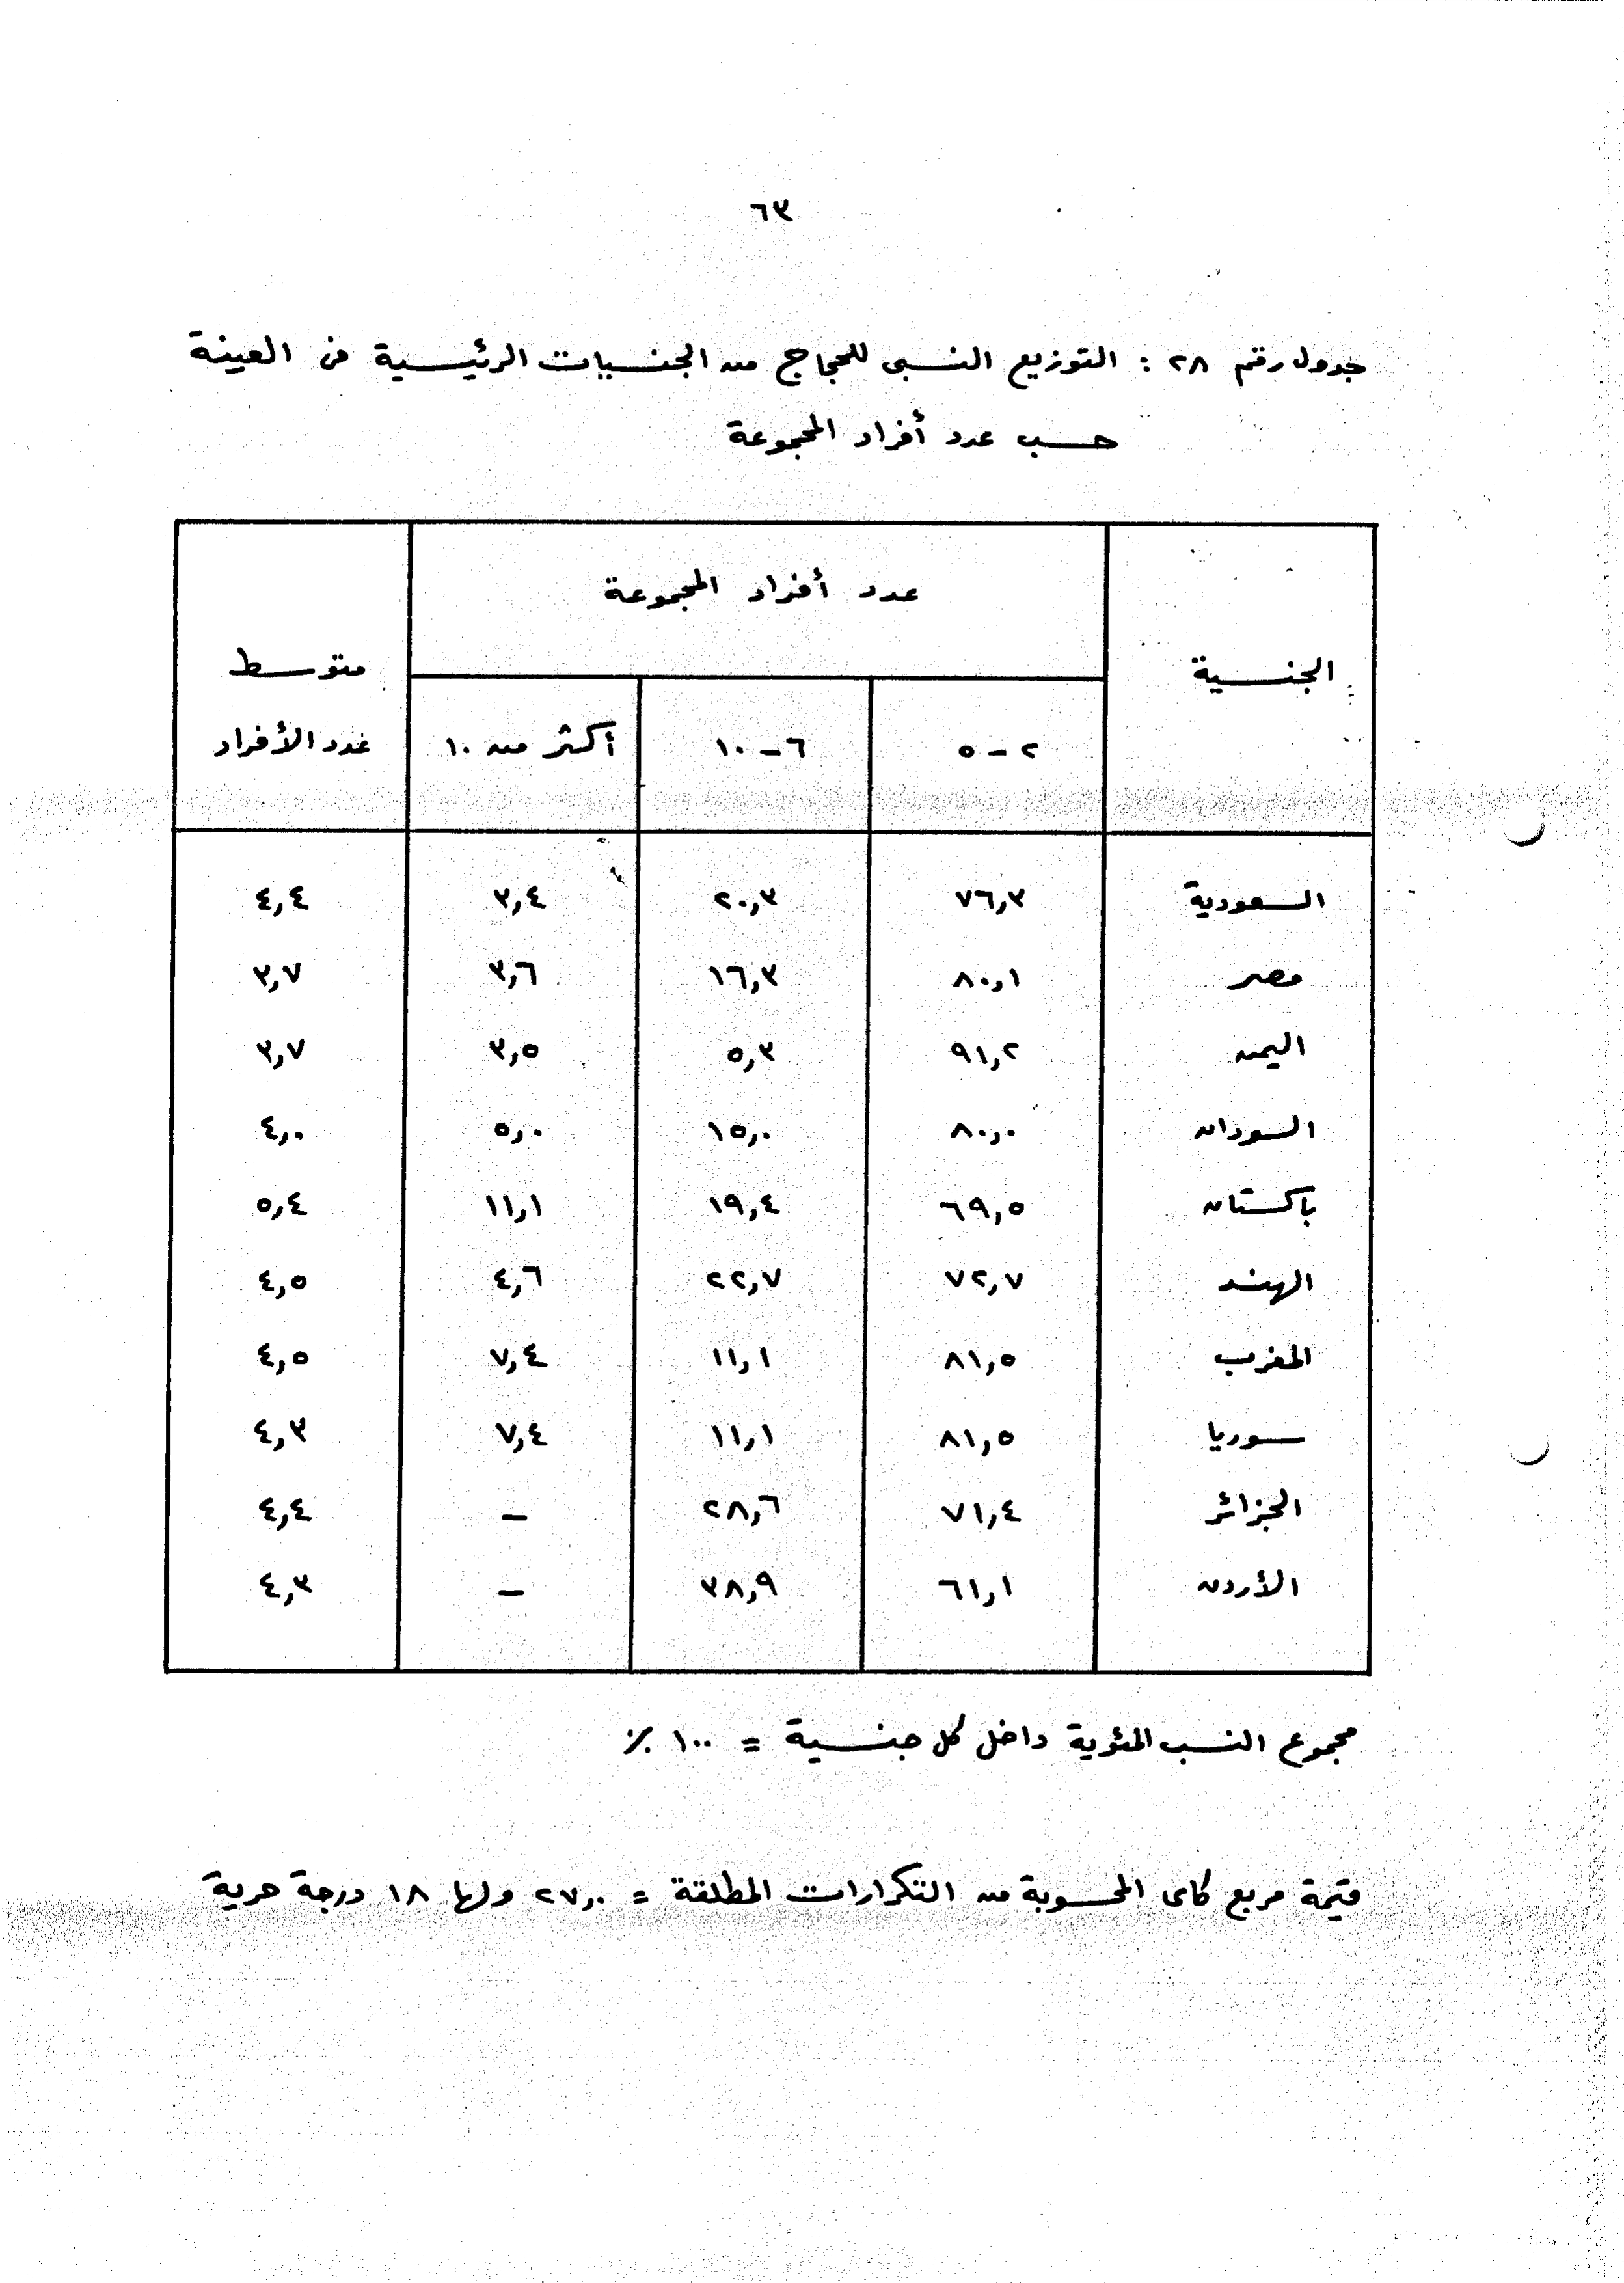 ٦٣
جدول رقم ٢٨ : التوزيع النسبى للحجاج من الجنسيات الرئيسية فى العينة
حسب عدد أفراد المجموعة
الجنسية عدد أفراد المجموعة متوسط عدد الأفراد
٢ - ٥ ٦ - ١٠ أكثر من ١٠
السعودية ٧٦,٣ ٢٠,٣ ٣,٤ ٤,٤
مصر ٨٠,١ ١٦,٣ ٣,٦ ٣,٧
اليمن ٩١,٢ ٥,٣ ٣,٥ ٣,٧
السودان ٨٠,٠ ١٥,٠ ٥,٠ ٤,٠
باكستان ٦٩,٥ ١٩,٤ ١١,١ ٥,٤
الهند ٧٢,٧ ٢٢,٧ ٤,٦ ٤,٥
المغرب ٨١,٥ ١١,١ ٧,٤ ٤,٥
سوريا ٨١,٥ ١١,١ ٧,٤ ٤,٣
الجزائر ٧١,٤ ٢٨,٦ - ٤,٤
الأردن ٦١,١ ٣٨,٩ - ٤,٣
مجموع النسب المئوية داخل كل جنسية = ١٠٠ ٪
قيمة مربع كاى المحسوبة من التكرارات المطلقة = ٢٧,٠ ولها ١٨ درجة حرية